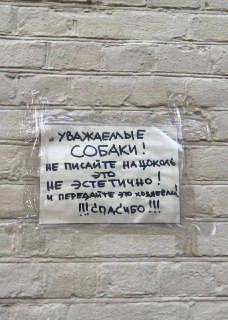 „ УВАЖАЕМЫЕ
СОБАКИ!
НЕ ПИСАЙТЕ НА ЦОКОЛЬ
ЭТО
НЕ ЭСТЕТИЧНО!
И ПЕРЕДАЙТЕ ЭТО ХОЗЯЕВАМ!
!!! СПАСИБО !!!